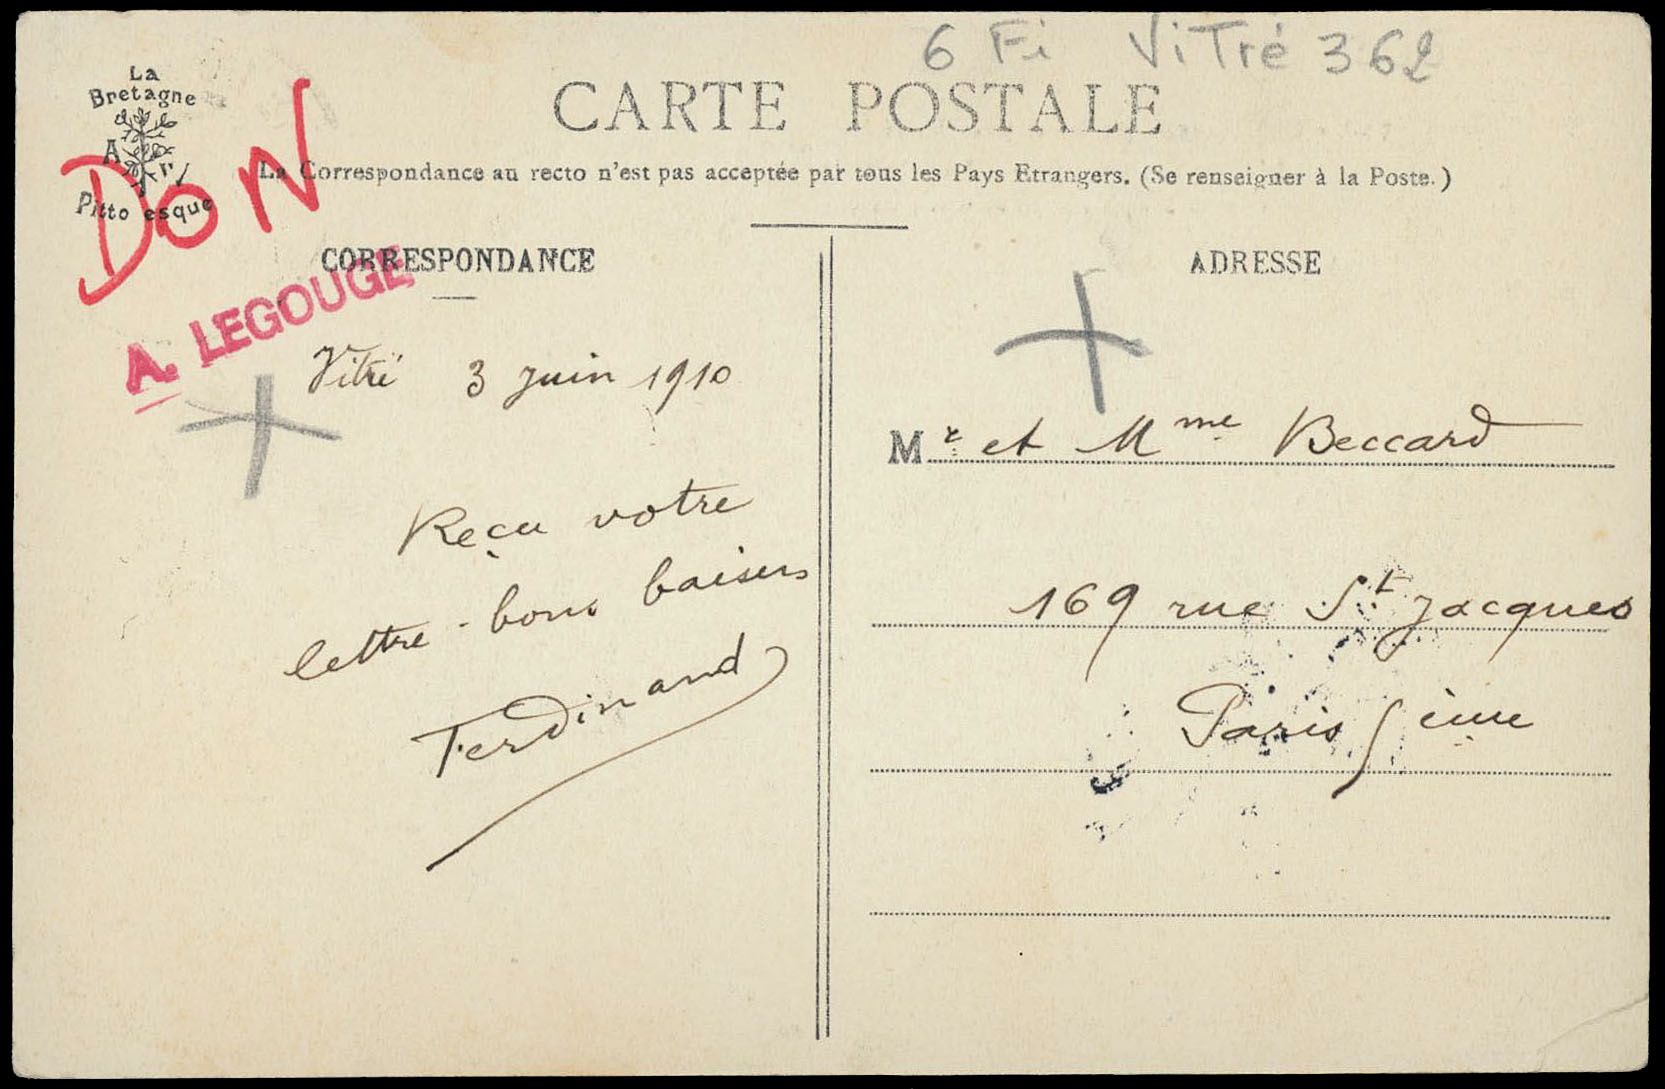 6 Fi Vitré 362
La
Bretagne
A
Pittoresque
DON
CARTE POSTALE
La Correspondance au recto n'est pas acceptée par tous les Pays Etrangers. (Se renseigner à la Poste.)
CORRESPONDANCE
A. LEGOUGE
Vitré 3 juin 1910
Reçu votre
lettre - bons baisers
Ferdinand
ADRESSE
Mr et Mme Beccard
169 rue St Jacques
Paris 5ème